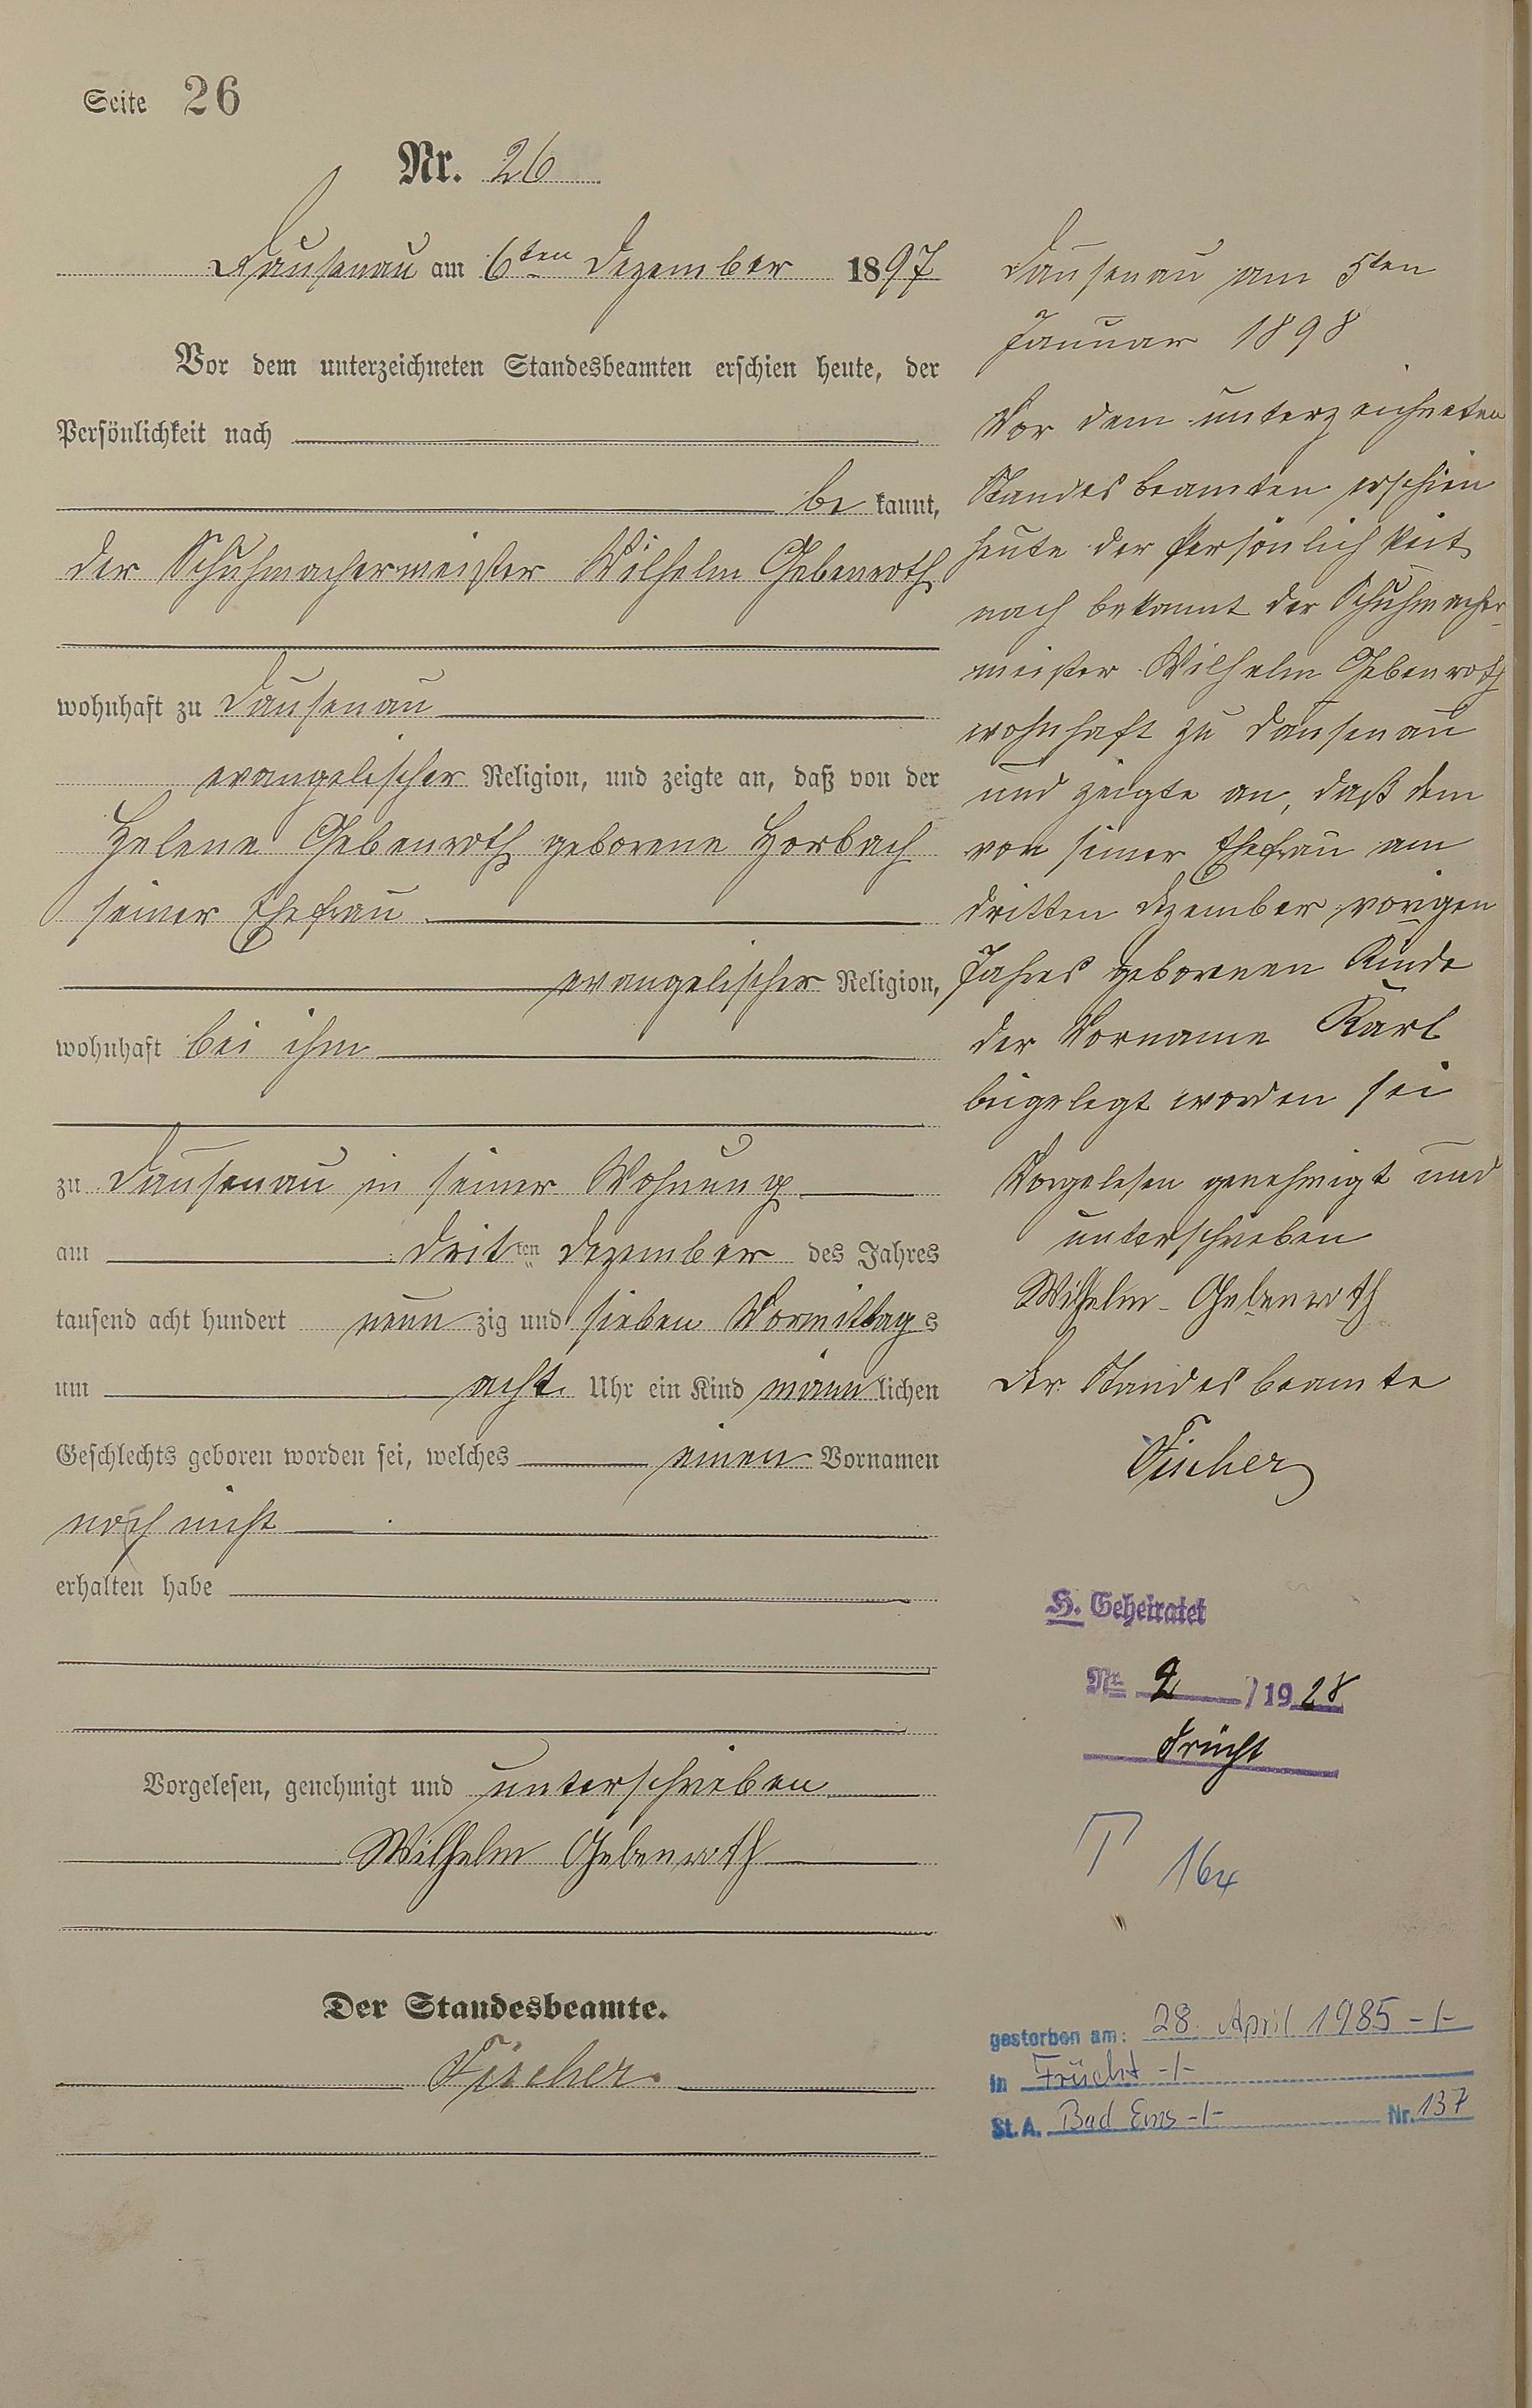 Seite 26
Nr. 26
Dausenau am 6ten Dezember 1897
Vor dem unterzeichneten Standesbeamten erschien heute, der
Persönlichkeit nach
be kannt,
der Schuhmachermeister Wilhelm Gebenroth
wohnhaft zu Dausenau
evangelischer Religion, und zeigte an, daß von der
Helene Gebenroth geborene Horbach
seiner Ehefrau
evangelischer Religion,
wohnhaft bei ihm
zu Dausenau in seiner Wohnung
am dritten Dezember des Jahres
tausend acht hundert neun zig und sieben Vormittags
um acht Uhr ein Kind männlichen
Geschlechts geboren worden sei, welches einen Vornamen
noch nicht
erhalten habe
Vorgelesen, genehmigt und unterschrieben
Wilhelm Gebenroth
Der Standesbeamte.
Fischer.
Dausenau am 5ten
Januar 1898
Vor dem unterzeichneten
Standesbeamten erschien
heute der Persönlichkeit
nach bekannt der Schuhmacher-
meister Wilhelm Gebenroth
wohnhaft zu Dausenau
und zeigte an, daß dem
von seiner Ehefrau am
dritten Dezember vorigen
Jahres geborenen Kinde
der Vorname Karl
beigelegt worden sei
Vorgelesen genehmigt und
unterschrieben
Wilhelm Gebenroth
Der Standesbeamte
Fischer
H. Geheiratet
Nr. 2 / 1928
Frücht
T 164
gestorben am: 28. April 1985 -/-
in Frücht -/-
St. A. Bad Ems -/- Nr. 137